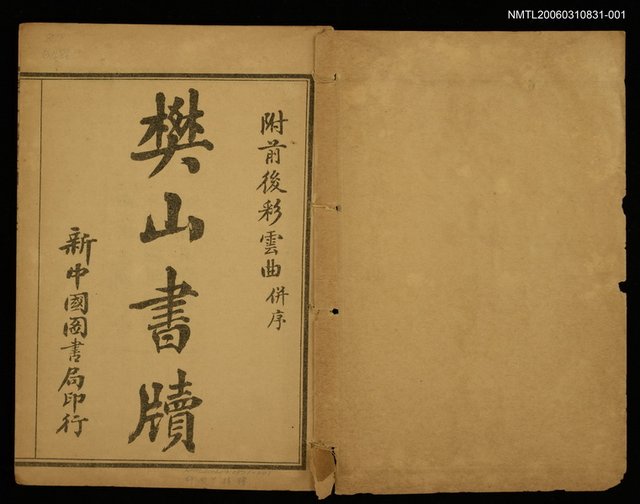 NMTL20060310831-001
附前後彩雲曲併序
樊山書牘
新中國圖書局印行